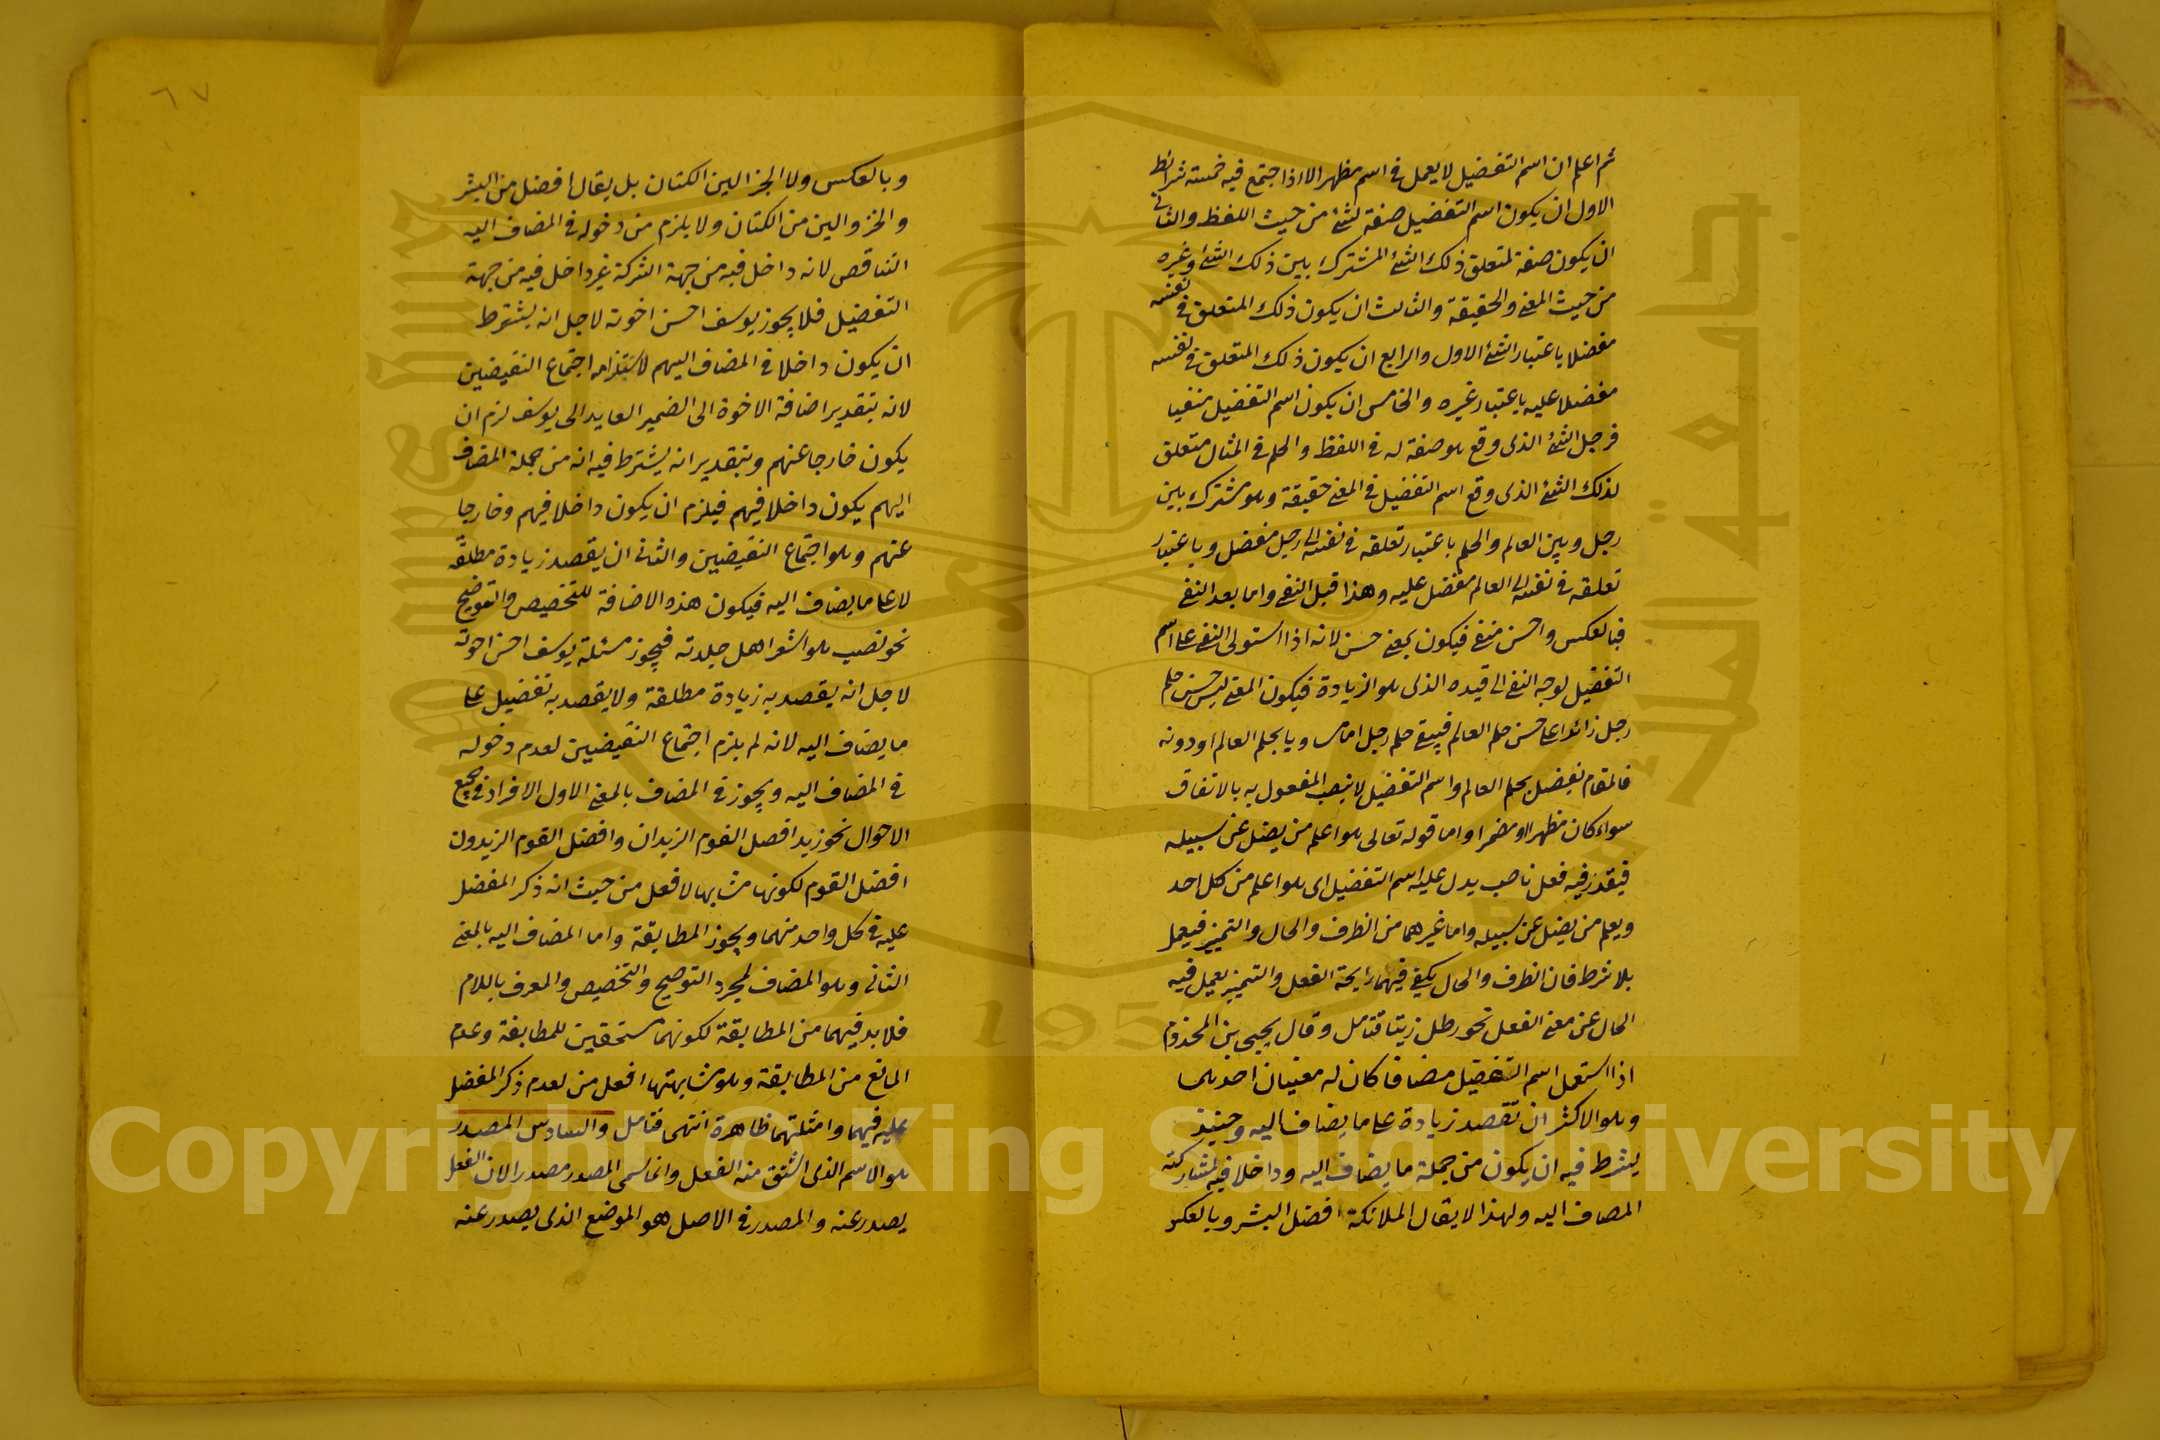 ثم اعلم ان اسم التفضيل لا يعمل فى اسم مظهر الا اذا اجتمع فيه خمسته شرائط
الاول ان يكون اسم التفضيل صفة لشئ من حيث اللفظ والثانى
ان يكون صفة لمتعلق ذلك الشئ المشترك بين ذلك الشئ وغيره
من حيث المعنى والحقيقة والثالث ان يكون ذلك المتعلق فى نفسه
مفضلا باعتبار الشئ الاول والرابع ان يكون ذلك المتعلق فى نفسه
مفضلا عليه باعتبار غيره والخامس ان يكون اسم التفضيل منفيا
فرجل الشئ الذى وقع هو صفة له فى اللفظ والحلم فى المثال متعلق
لذلك الشئ الذى وقع اسم التفضيل فى المعنى حقيقة وهو مشترك بين
رجل وبين العالم والحلم باعتبار تعلقه فى نفسه الى رجل مفضل وباعتبار
تعلقه فى نفسه الى العالم مفضل عليه وهذا قبل النفى واما بعد النفى
فبالعكس واحسن منفى فيكون بمعنى حسن لانه اذا استولى النفى على اسم
التفضيل توجه النفى الى قيده الذى هو الزيادة فيكون المعنى ليس حسن حلم
رجل زائدا على حسن حلم العالم فيبقى حلم رجل اما مساويا بحلم العالم او دونه
فالمقام يفضل بحلم العالم واسم التفضيل لا ينصب المفعول به بالاتفاق
سواء كان مظهرا او مضمرا واما قوله تعالى هو اعلم من يضل عن سبيله
فيقدر فيه فعل ناصب يدل عليه اسم التفضيل اى هو اعلم من كل احد
ويعلم من يضل عن سبيله واما غيرهما من الظرف والحال والتمييز فيعمل
بلا شرط فان الظرف والحال يكفى فيهما رايحة الفعل والتمييز يعمل فيه
الحال عن معنى الفعل نحو رطل زيتا فتامل وقال يحيى بن المخدوم
اذا استعمل اسم التفضيل مضافا كان له معنيان احدهما
وهو الاكثر ان تقصد زيادة على ما يضاف اليه وحينئذ
يشرط فيه ان يكون من جملة ما يضاف اليه وداخلا فيه لمشاركته
المضاف اليه ولهذا لا يقال الملائكة افضل البشر وبالعكس
٦٧
وبالعكس ولا الخز الين الكتان بل يقال افضل من البشر
والخز والين من الكتان ولا يلزم من دخوله فى المضاف اليه
التناقص لانه داخل فيه من جهة الشركة غير داخل فيه من جهة
التفضيل فلا يجوز يوسف احسن اخوته لاجل انه يشترط
ان يكون داخلا فى المضاف اليهم لاستلزامه اجتماع النقيضين
لانه بتقدير اضافة الاخوة الى الضمير العايد الى يوسف لزم ان
يكون خارجا عنهم وبتقدير انه يشترط فيه انه من جملة المضاف
اليهم يكون داخلا فيهم فيلزم ان يكون داخلا فيهم وخارجا
عنهم وهو اجتماع النقيضين والثانى ان يقصد زيادة مطلقة
لا على ما يضاف اليه فيكون هذه الاضافة للتخصيص والتوضيح
نحو نصيب هو اشعر اهل جلدته فيجوز مسئلة يوسف احسن اخوته
لاجل انه يقصد به زيادة مطلقة ولا يقصد به تفضيل على
ما يضاف اليه لانه لم يلزم اجتماع النقيضين لعدم دخوله
فى المضاف اليه ويجوز فى المضاف بالمعنى الاول الافراد فى جميع
الاحوال نحو زيد افضل القوم الزيدان وافضل القوم الزيدون
افضل القوم لكونها مشابها لافعل من حيث انه ذكر المفضل
عليه فى كل واحد منهما ويجوز المطابقة واما المضاف اليه بالمعنى
الثانى وهو المضاف لمجرد التوضيح والتخصيص والمعرف باللام
فلا بد فيهما من المطابقة لكونهما مستحقين للمطابقة وعدم
المانع من المطابقة وهو مشابهتها افعل من لعدم ذكر المفضل
عليه فيهما وامثلتهما ظاهرة انتهى فتامل والسادس المصدر
هو الاسم الذى اشتق منه الفعل وانما سمى المصدر مصدرا لان الفعل
يصدر عنه والمصدر فى الاصل هو الموضع الذى يصدر عنه
جامعة الملك سعود
King Saud University
1957
Copyright © King Saud University